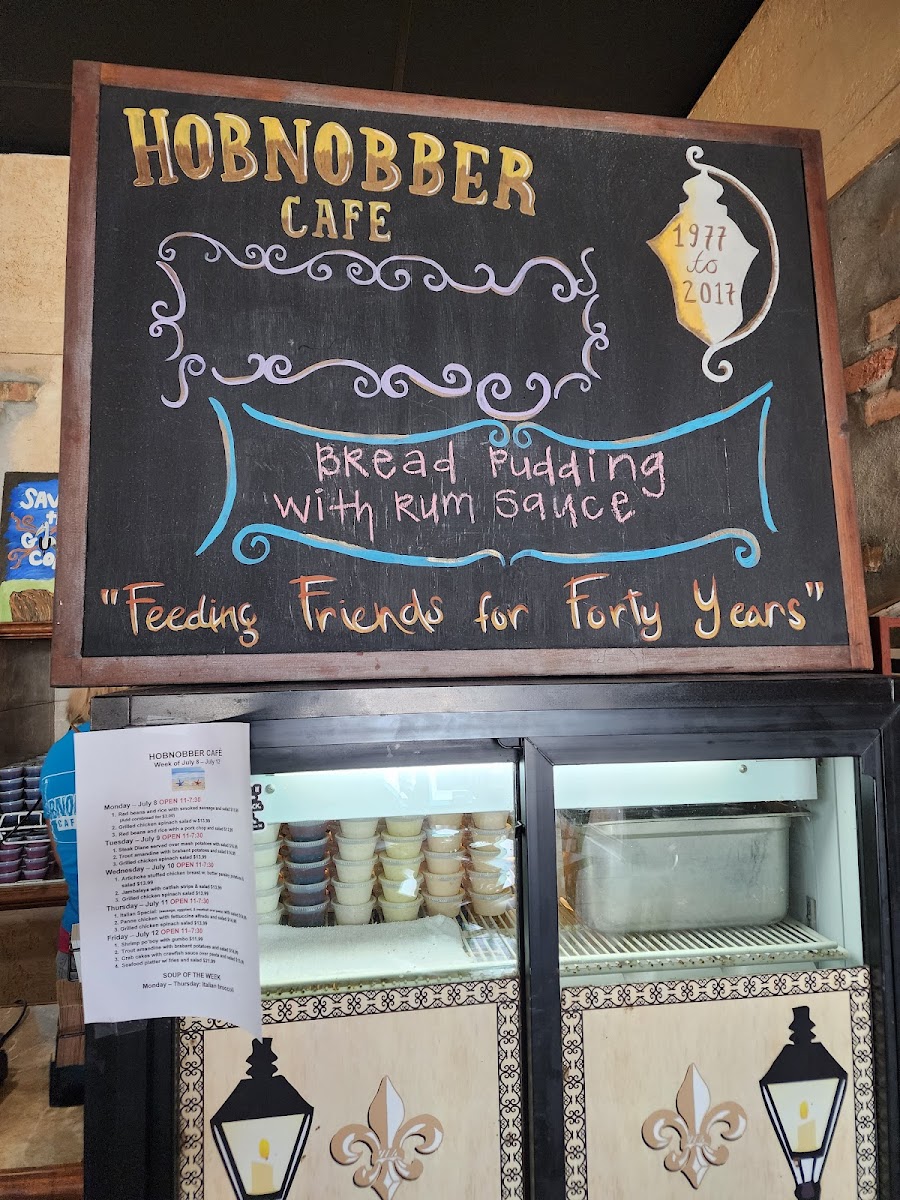 HOBNOBBER
CAFE
1977
to
2017
Bread Pudding
with Rum Sauce
"Feeding Friends for Forty Years"
SAV
HOBNOBBER CAFE
Week of July 8 – July 12
Monday – July 8 OPEN 11-7:30
1. Red beans and rice with smoked sausage and salad
2. Grilled chicken spinach salad w $13.99
3. Red beans and rice with a pork chop and salad
Tuesday – July 9 OPEN 11-7:30
1. Steak Diane served over mash potatoes with salad
2. Trout amandine with brabant potatoes and salad
3. Grilled chicken spinach salad $13.99
Wednesday – July 10 OPEN 11-7:30
1. Artichoke stuffed chicken breast w. butter parsley potatoes
salad $13.99
2. Jambalaya with catfish strips & salad $13.99
3. Grilled chicken spinach salad $13.99
Thursday – July 11 OPEN 11-7:30
1. Italian Special
2. Panne chicken with fettuccine alfredo and salad
3. Grilled chicken spinach salad $13.99
Friday – July 12 OPEN 11-7:30
1. Shrimp po'boy with gumbo $11.99
2. Trout amandine with brabant potatoes and salad
3. Crab cakes with crawfish sauce over pasta and salad
4. Seafood platter w/ fries and salad $21.99
SOUP OF THE WEEK
Monday – Thursday: Italian broccoli